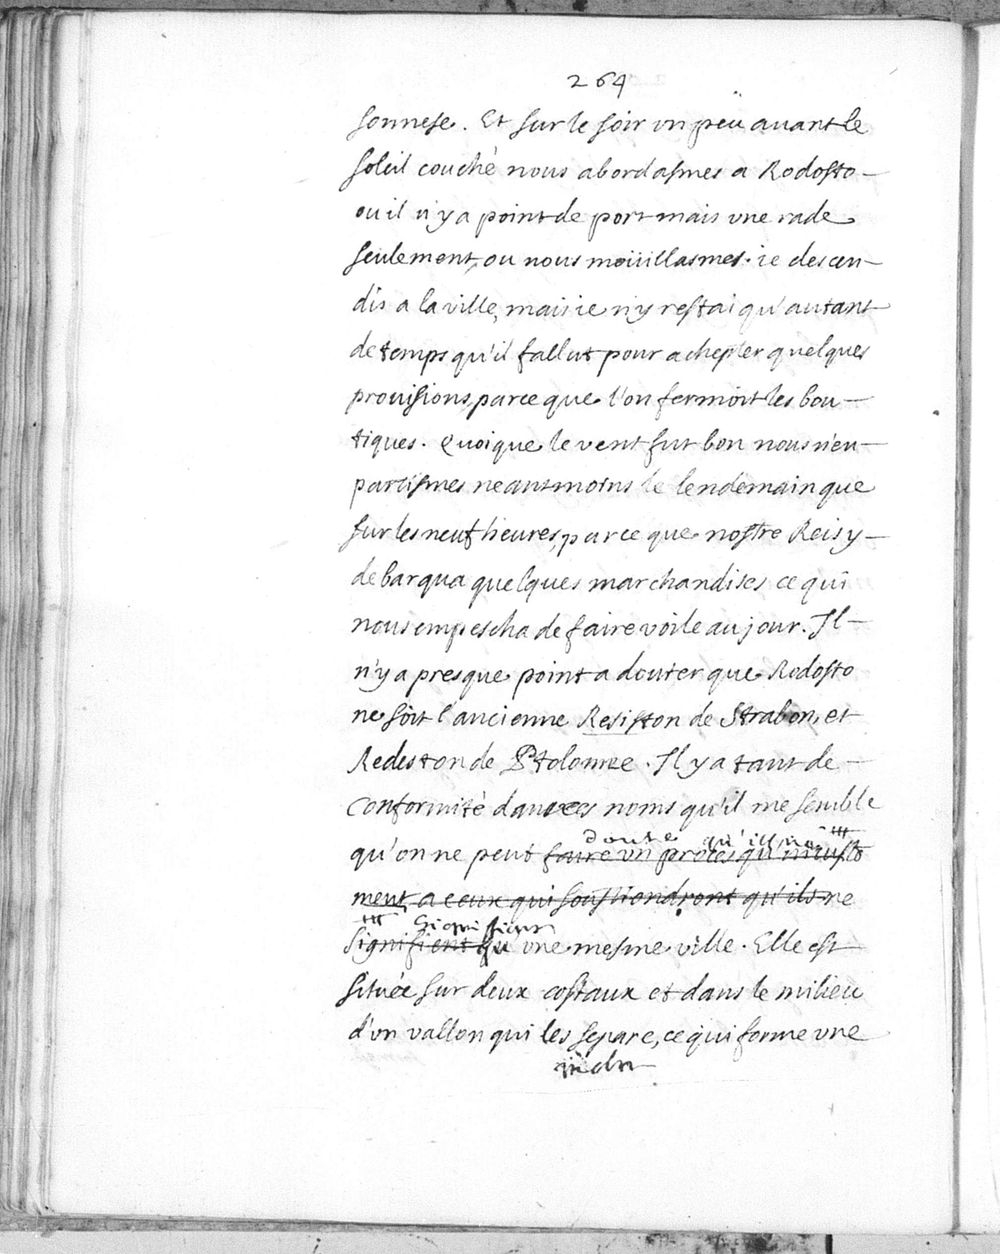 264
sonnese. Et sur le soir vn peü auant le
soleil couché nous abordasmes a Rodosto
ou il n'y a point de port mais vne rade
seulement, ou nous moüillasmes. ie descen-
dis a la ville, mais ie n'y restai qu'autant
de temps qu'il fallut pour achepter quelques
prouisions, parce que l'on fermoit les bou-
tiques. Quoique le vent fut bon nous n'en
partismes neantmoins le lendemain que
sur les neuf heures, parce que nostre Reis y
debarqua quelques marchandises ce qui
nous empescha de faire voile au jour. Il
n'y a presque point a douter que Rodosto
ne soit l'ancienne Resiston de Strabon, et
Redeston de Ptolomee. Il y a tant de
conformité dans ces noms qu'il me semble
doute qu'ils
qu'on ne peut faire vn procés qu'iniuste
ment a ceux qui soustiendront qu'ils ne
Signifient
signifient qu vne mesme ville. Elle est
située sur deux costaux et dans le milieu
d'vn vallon qui les separe, ce qui forme vne